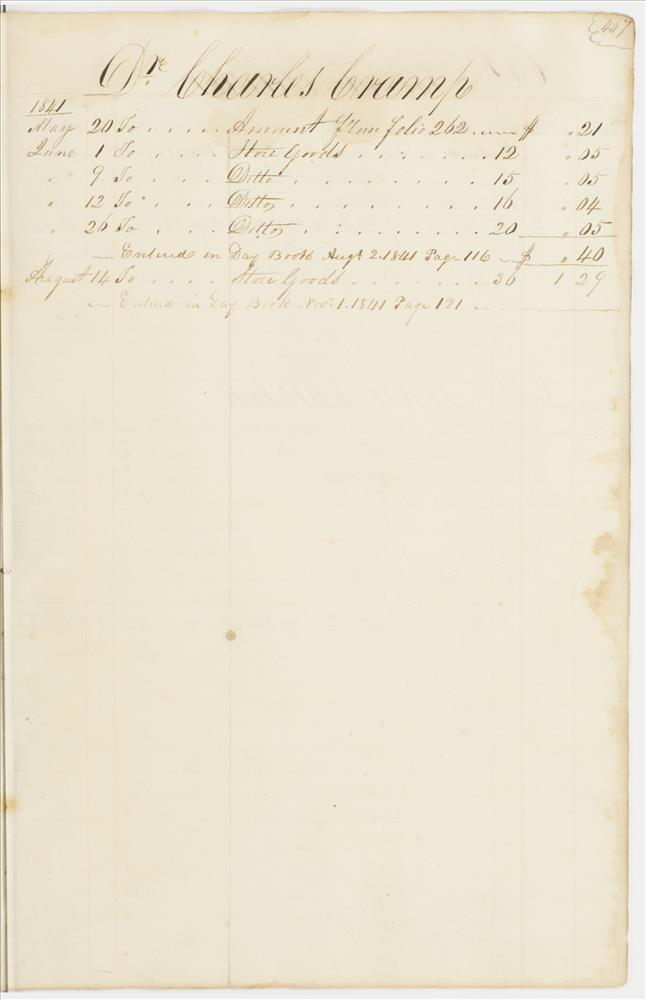 467
Dr. Charles Cramp
1841
May 20 To . . . . . Amount from folio 262 . — $ " 21
June 1 To . . . . Store Goods . . . . . . 12 " 05
" 9 To . . . . Ditto . . . . . . . . 15 " 05
" 12 To . . . . Ditto . . . . . . . . 16 " 04
" 26 To . . . . Ditto . . . . . . . . 20 — " 05
— Entered in Day Book Augt 2. 1841 Page 116 — $ " 40
August 14 To . . . . Store Goods . . . . . . . 36 1 29
— Entered in Day Book Nov. 1. 1841 Page 121 —